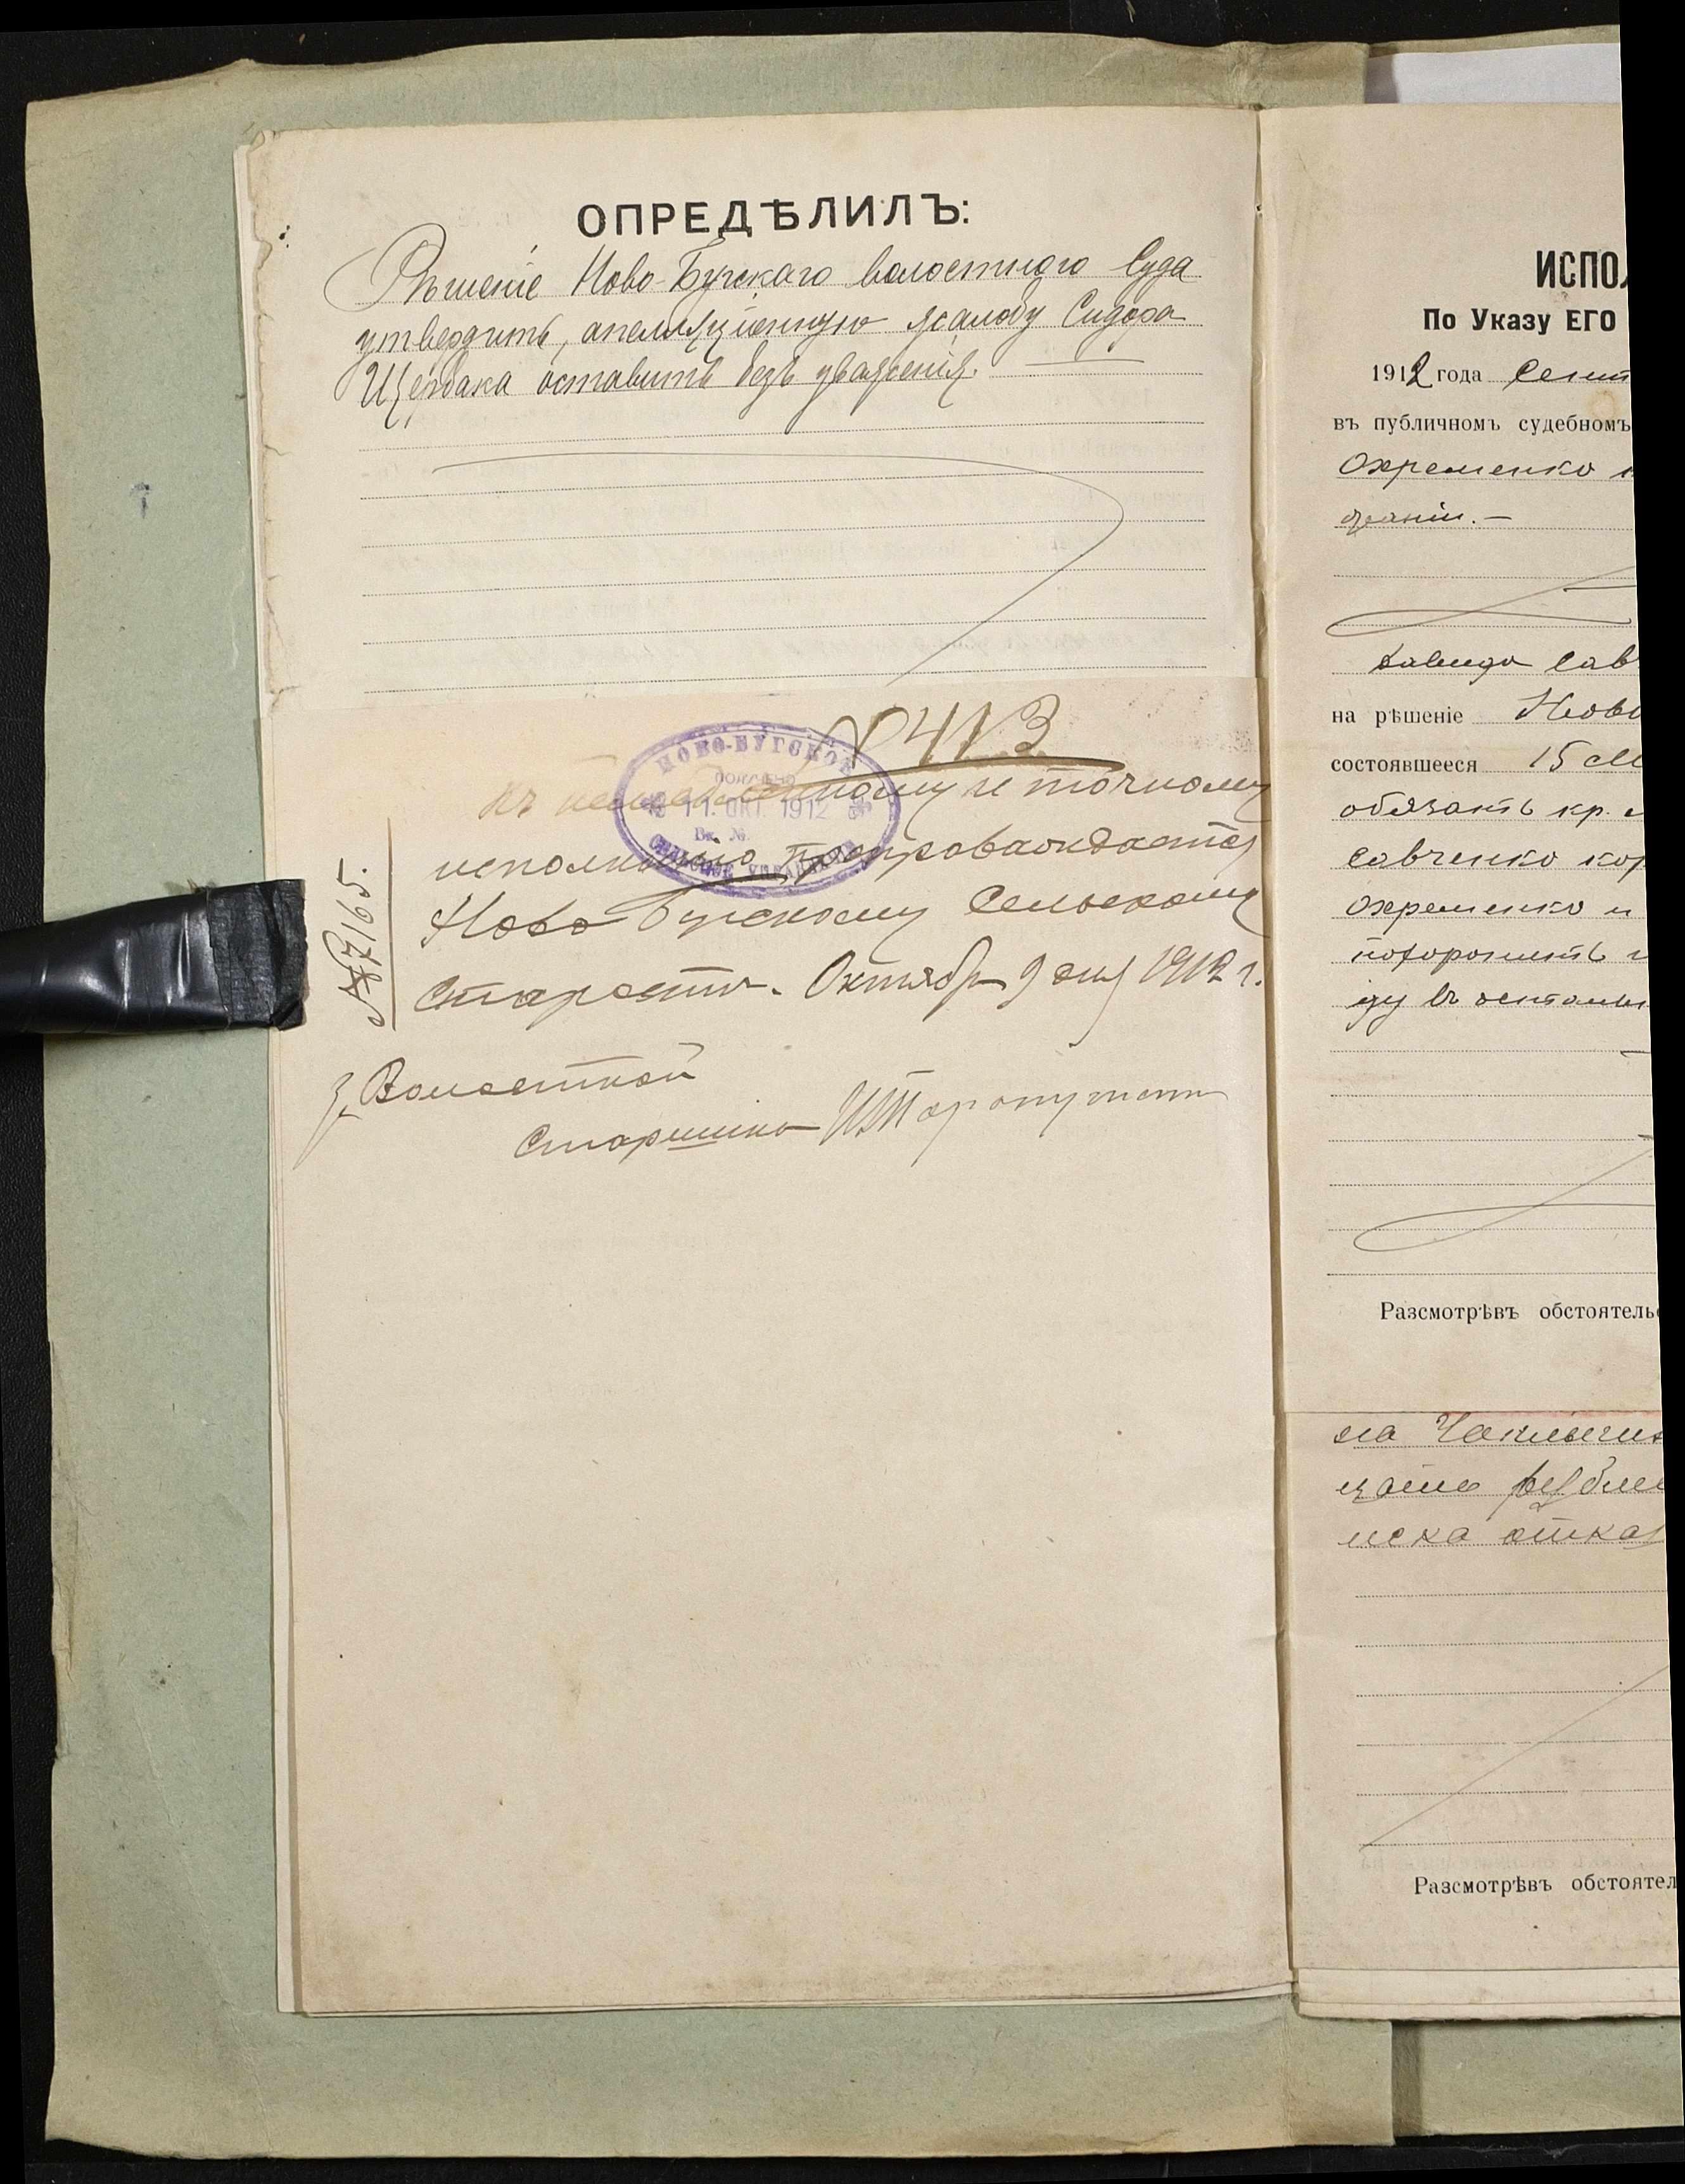 ОПРЕДѢЛИЛЪ:
Рѣшеніе Ново-Бугскаго волостного Суда
утвердить, апелляціонную жалобу Сидора
Щербака оставить безъ уваженія.
НОВО-БУГСКОЕ
ПОЛУЧЕНО
11. ОКТ. 1912
Вх. №
СЕЛЬСКОЕ УПРАВЛЕНІЕ
и точному
исполненію препровождается
Ново Бугскому Сельскому
Старостѣ. Октября 9 дня 1912 г.
№ 7165.
Волостной
Старшина
ИСПОЛ
По Указу ЕГО
1912 года Сент
въ публичномъ судебномъ
Охременко
жаніи.—
Сав
на рѣшеніе Ново
состоявшееся 15
обязать кр.
Савченко кор
Охременко и
Разсмотрѣвъ обстоятельс
на
иска отказ
Разсмотрѣвъ обстоятел